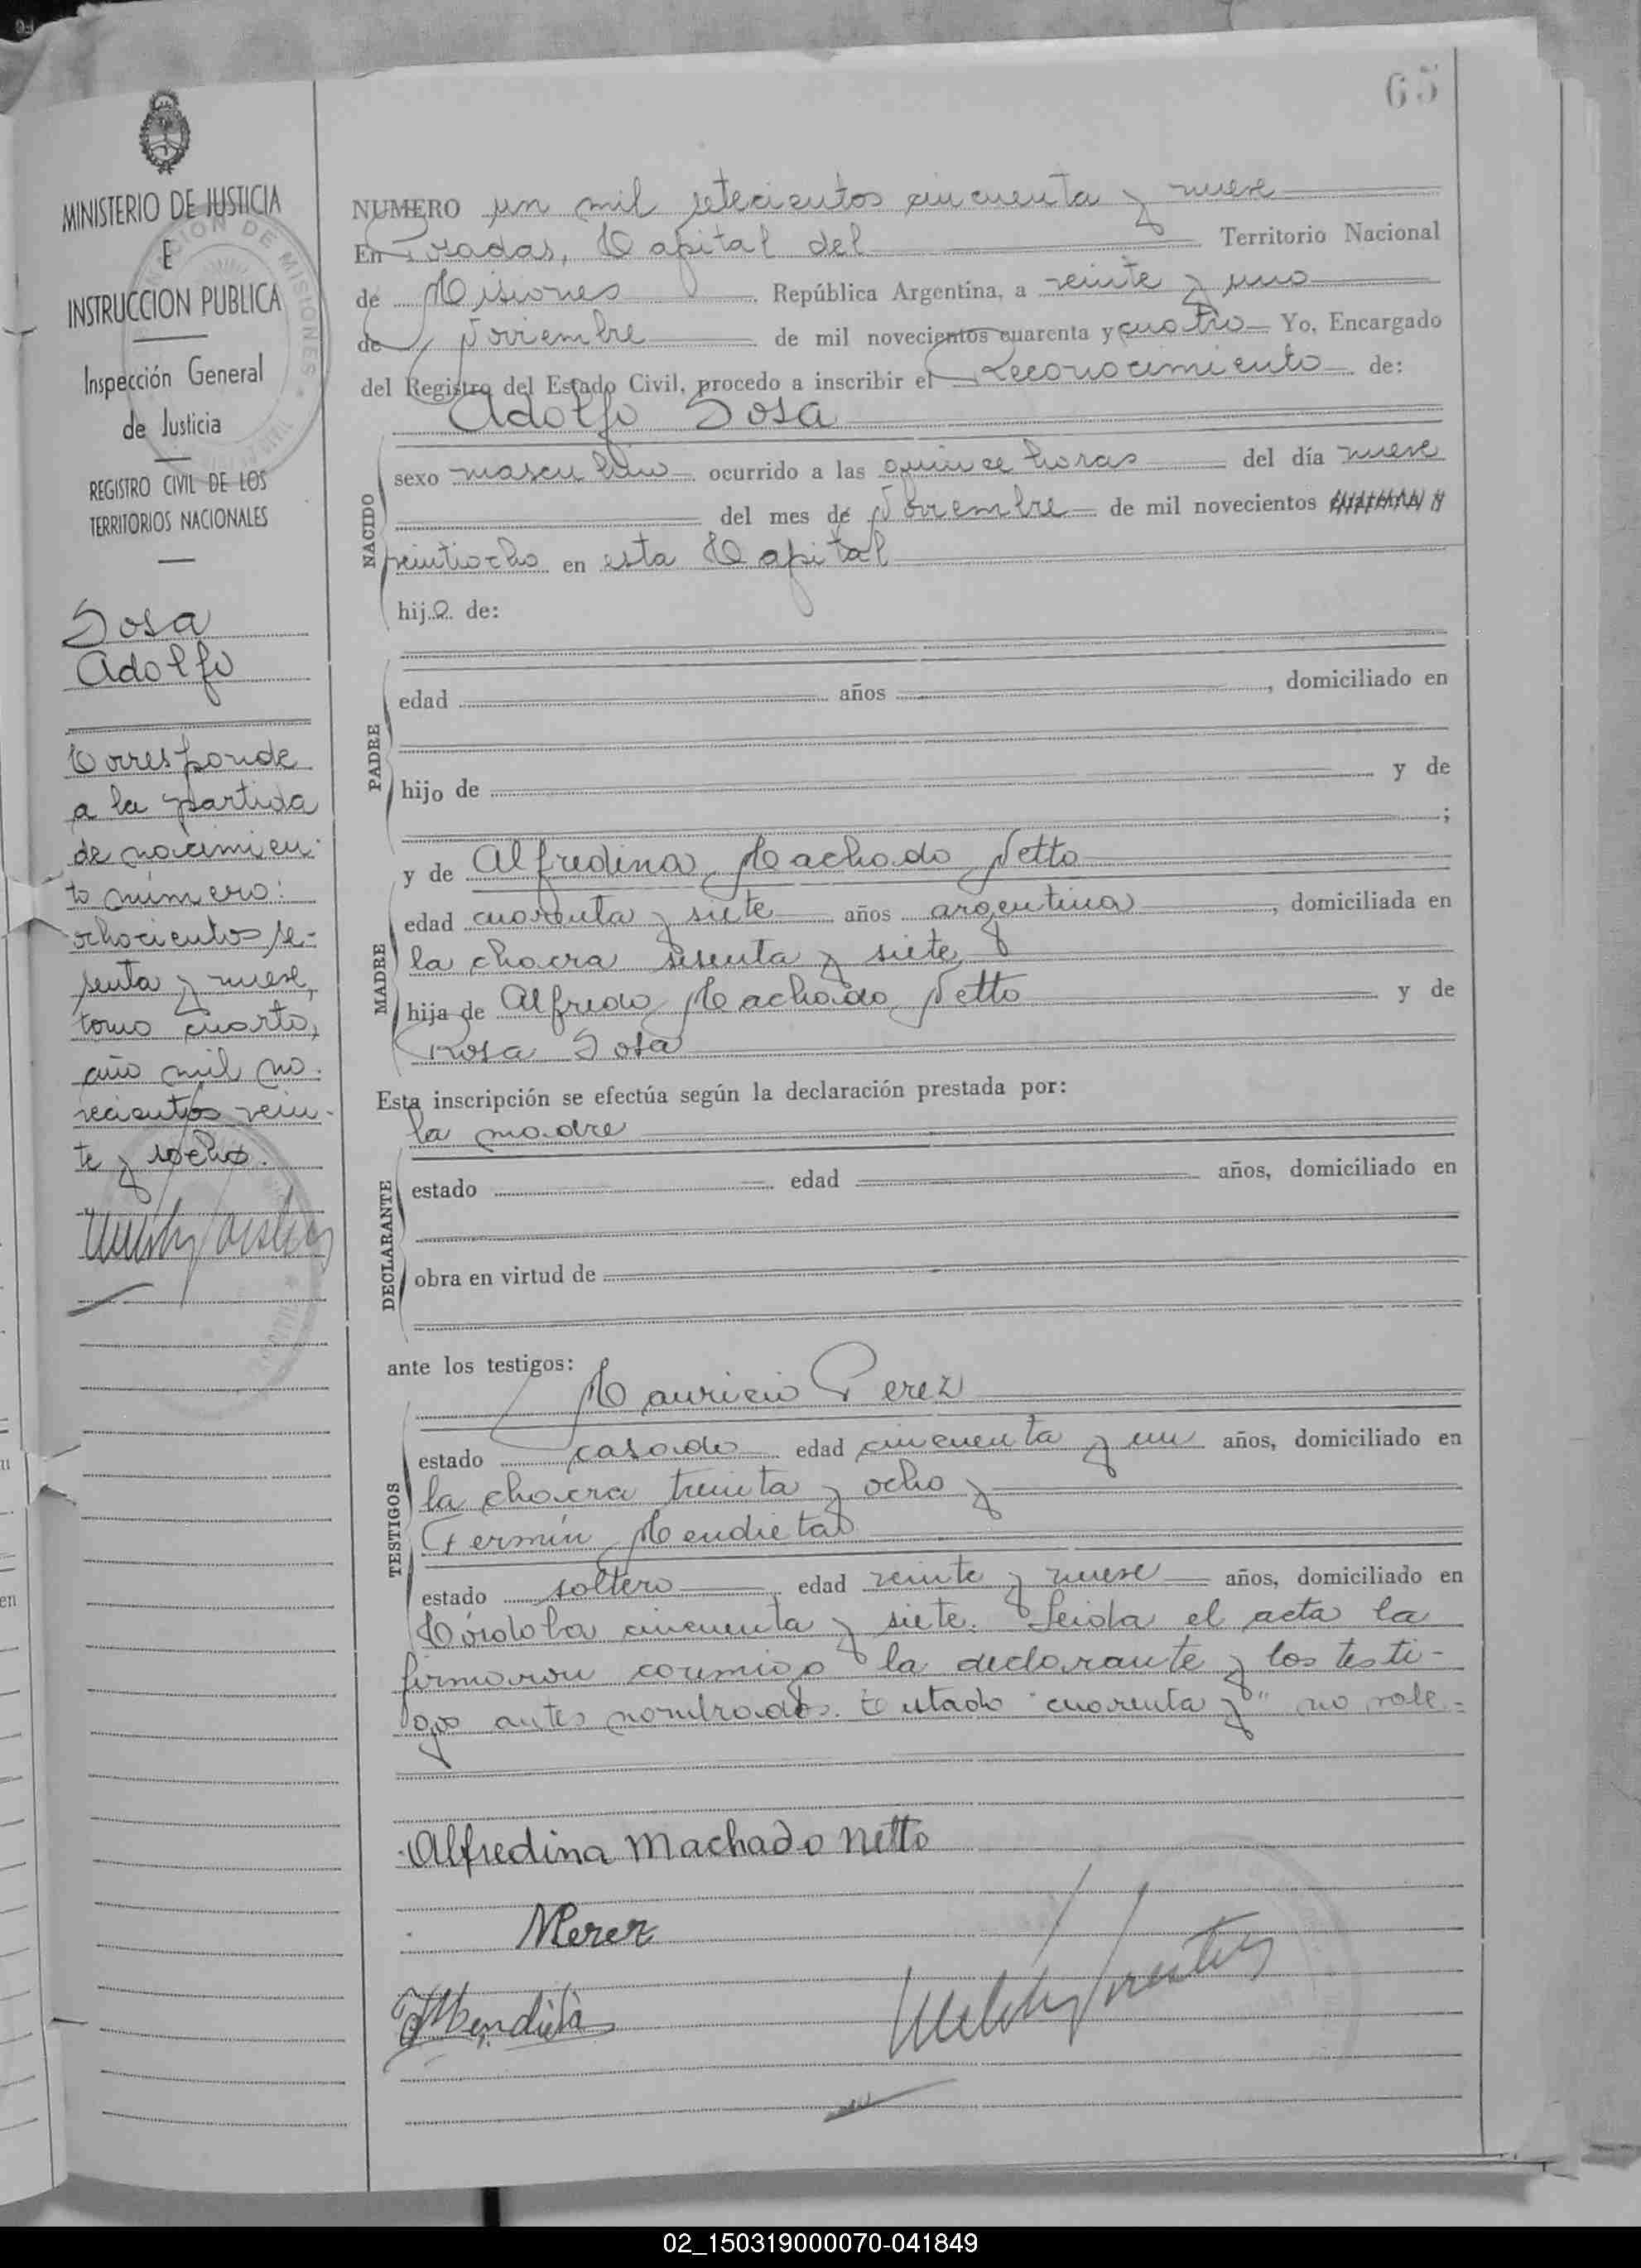 65
MINISTERIO DE JUSTICIA
E
INSTRUCCION PUBLICA
Inspección General
de Justicia
REGISTRO CIVIL DE LOS
TERRITORIOS NACIONALES
Sosa
Adolfo
Corresponde
a la partida
de nacimien-
to número:
ochocientos se-
senta y nueve,
tomo cuarto,
año mil no-
vecientos vein-
te y ocho.
NUMERO un mil setecientos cincuenta y nueve
En Posadas, Capital del Territorio Nacional
de Misiones República Argentina, a veinte y uno
de Noviembre de mil novecientos cuarenta y cuatro Yo, Encargado
del Registro del Estado Civil, procedo a inscribir el Reconocimiento de:
Adolfo Sosa
NACIDO
sexo masculino ocurrido a las quince horas del día nueve
del mes de Noviembre de mil novecientos
veintiocho en esta Capital
hijo de:
PADRE
edad años , domiciliado en
hijo de y de
;
MADRE
y de Alfredina Machado Netto
edad cuarenta y siete años argentina, domiciliada en
la chacra sesenta y siete,
hija de Alfredo Machado Netto y de
Rosa Sosa
Esta inscripción se efectúa según la declaración prestada por:
la madre
DECLARANTE
estado edad años, domiciliado en
obra en virtud de
ante los testigos:
Mauricio Perez
TESTIGOS
estado casado edad cincuenta y un años, domiciliado en
la chacra treinta y ocho y
Fermín Mendieta
estado soltero edad veinte y nueve años, domiciliado en
Córdoba cincuenta y siete. Leida el acta la
firmaron conmigo la declarante y los testi-
gos antes nombrados. Testado "cuarenta y" no vale.-
Alfredina Machado Netto
MPerez
FMendieta
02_150319000070-041849